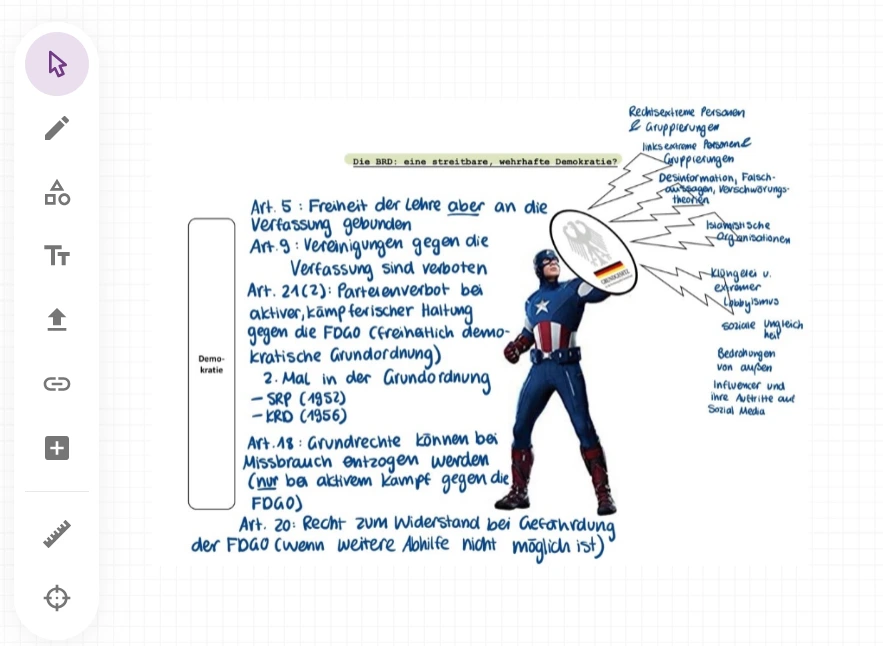 Die BRD: eine streitbare, wehrhafte Demokratie?
Art. 5 : Freiheit der Lehre aber an die
Verfassung gebunden
Art. 9 : Vereinigungen gegen die
Verfassung sind verboten
Art. 21(2): Parteienverbot bei
aktiver, kämpferischer Haltung
gegen die FDGO (freiheitlich demo-
kratische Grundordnung)
2. Mal in der Grundordnung
- SRP (1952)
- KRD (1956)
Art. 18 : Grundrechte können bei
Missbrauch entzogen werden
(nur bei aktivem Kampf gegen die
FDGO)
Art. 20: Recht zum Widerstand bei Gefährdung
der FDGO (wenn weitere Abhilfe nicht möglich ist)
Demo-
kratie
GRUNDGESETZ
Rechtsextreme Personen
& Gruppierungen
linksextreme Personen &
Gruppierungen
Desinformation, Falsch-
aussagen, Verschwörungs-
theorien
Islamistische
Organisationen
Klüngelei u.
extremer
Lobbyismus
soziale Ungleich
heit
Bedrohungen
von außen
Influencer und
ihre Auftritte auf
Sozial Media
TT